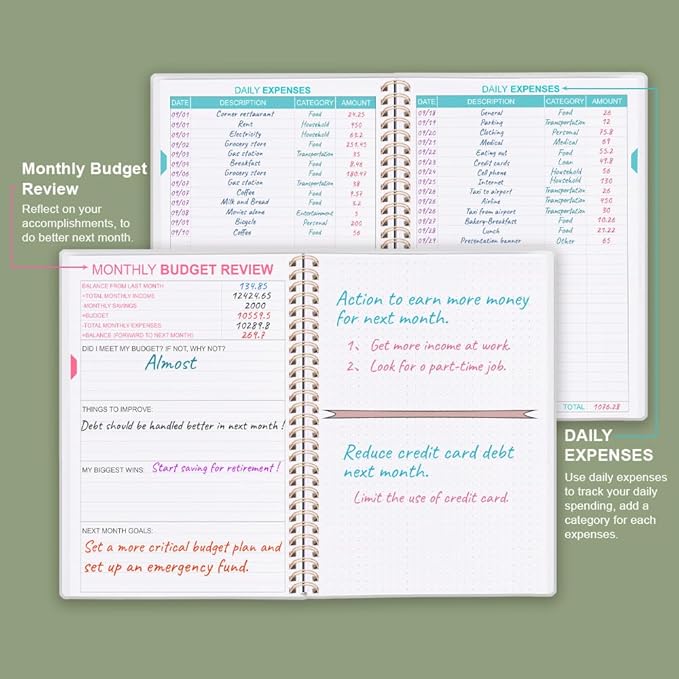 DAILY EXPENSES
DATE DESCRIPTION CATEGORY AMOUNT
09/01 Corner restaurant Food 24.25
09/01 Rent Household 950
09/01 Electricity Household 63.2
09/02 Grocery store Food 251.45
09/03 Gas station Transportation 35
09/04 Breakfast Food 8.46
09/06 Grocery store Food 180.47
09/07 Gas station Transportation 38
09/07 Coffee Food 9.57
09/07 Milk and Bread Food 5.2
09/08 Movies alone Entertainment 5
09/01 Bicycle Personal 200
09/10 Coffee Food 56
DAILY EXPENSES
DATE DESCRIPTION CATEGORY AMOUNT
09/18 General Food 26
09/19 Parking Transportation 12
09/20 Clothing Personal 75.8
09/21 Medical Medical 69
09/22 Eating out Food 55.2
09/23 Credit cards Loan 49.8
09/24 Cell phone Household 56
09/25 Internet Household 130
09/26 Taxi to airport Transportation 26
09/26 Airline Transportation 450
09/26 Taxi from airport Transportation 30
09/27 Bakery-Breakfast Food 10.26
09/28 Lunch Food 21.22
09/29 Presentation banner Other 65
TOTAL 1076.28
Monthly Budget
Review
Reflect on your
accomplishments, to
do better next month.
MONTHLY BUDGET REVIEW
BALANCE FROM LAST MONTH 134.85
+TOTAL MONTHLY INCOME 12424.65
-MONTHLY SAVINGS 2000
=BUDGET 10559.5
-TOTAL MONTHLY EXPENSES 10289.8
=BALANCE (FORWARD TO NEXT MONTH) 269.7
DID I MEET MY BUDGET? IF NOT, WHY NOT?
Almost
THINGS TO IMPROVE:
Debt should be handled better in next month!
MY BIGGEST WINS: Start saving for retirement!
NEXT MONTH GOALS:
Set a more critical budget plan and
set up an emergency fund.
Action to earn more money
for next month.
1、 Get more income at work.
2、 Look for a part-time job.
Reduce credit card debt
next month.
Limit the use of credit card.
DAILY
EXPENSES
Use daily expenses
to track your daily
spending, add a
category for each
expenses.